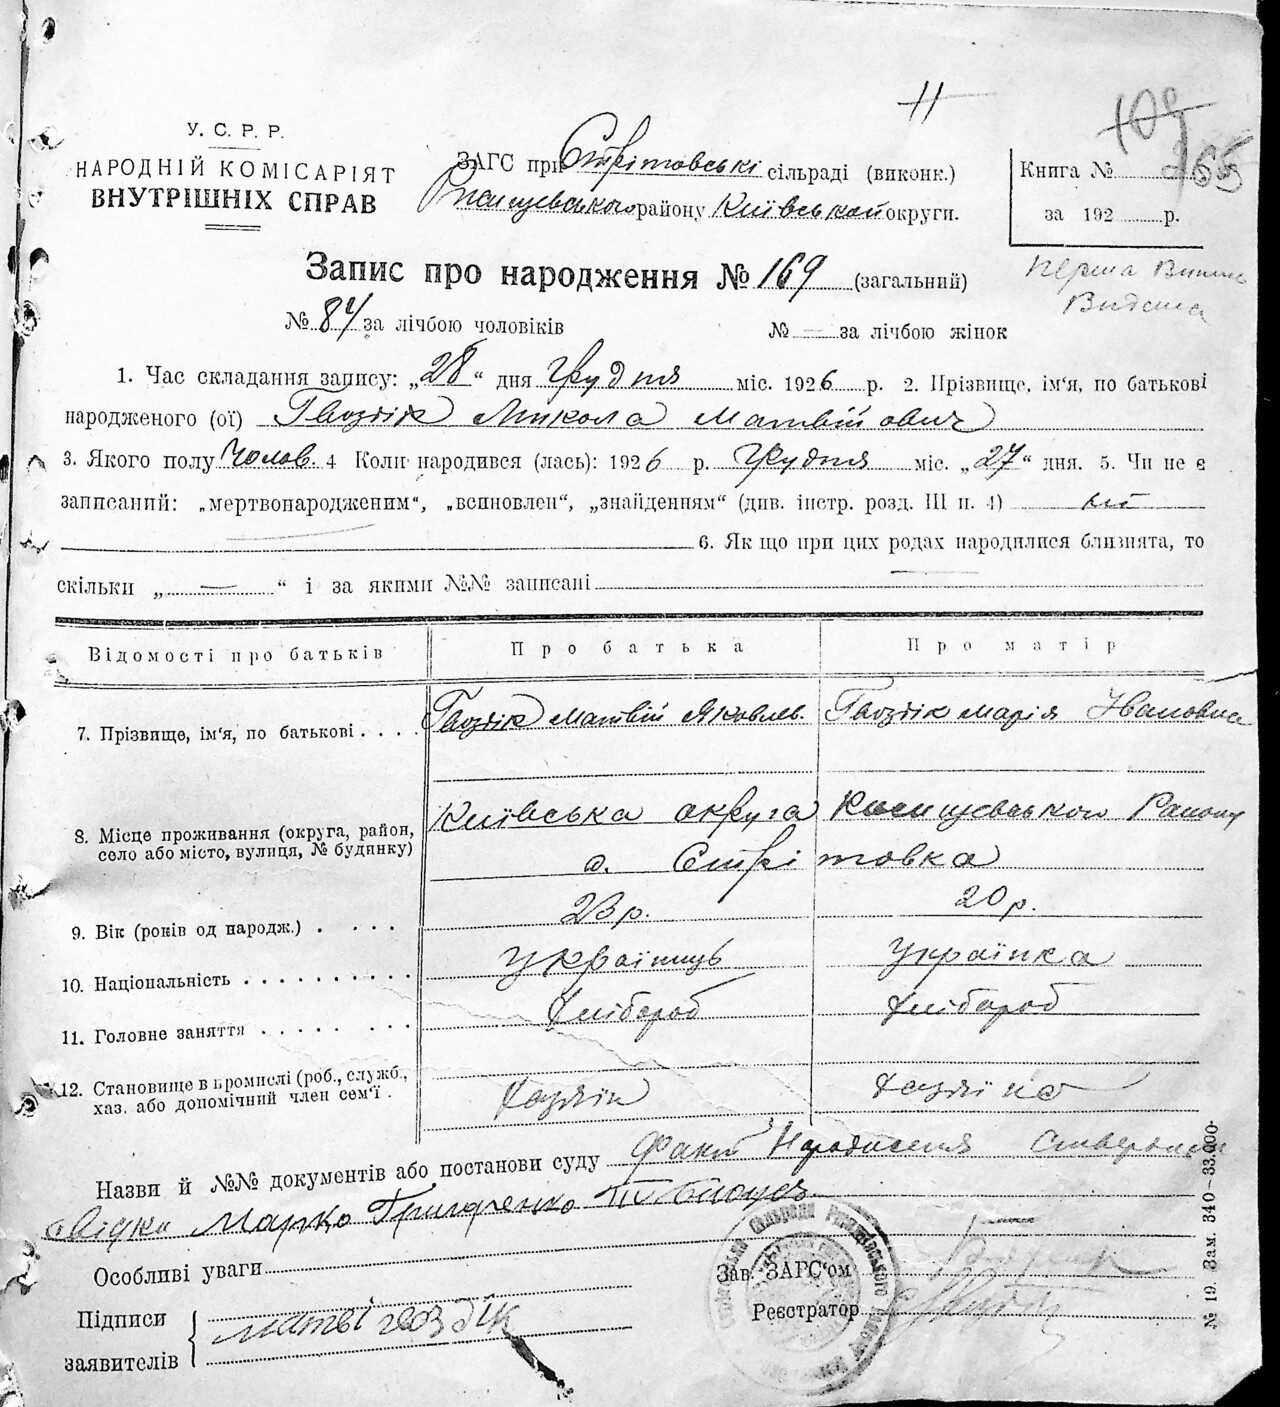 11
У. С. Р. Р.
НАРОДНІЙ КОМІСАРІЯТ
ВНУТРІШНІХ СПРАВ
ЗАГС при Стрітовські сільраді (виконк.)
Ржищевського району Київської округи.
Книга №
365
за 192 р.
перша випис
Видана
Запис про народження № 169 (загальний)
№ 84 за лічбою чоловіків № — за лічбою жінок
1. Час складання запису: „28“ дня Грудня міс. 1926 р. 2. Прізвище, ім'я, по батькові
народженого (ої) Гвоздік Микола Матвійович
3. Якого полу Чолов. 4 Коли народився (лась): 1926 р. Грудня міс. „27“ дня. 5. Чи не є
записаний: „мертвонародженим“, „всиновлен“, „знайденням“ (див. інстр. розд. III п. 4) ні
6. Як що при цих родах народилися близнята, то
скільки „ — “ і за якими №№ записані
Відомості про батьків Про батька Про матір
7. Прізвище, ім'я, по батькові . . . . Гвоздік Матвій Яковлев. Гвоздік Марія Ивановна
8. Місце проживання (округа, район, село або місто, вулиця, № будинку) Київська округа Ржищевського Району
с. Стрітовка
9. Вік (років од народж.) . . . . 23 р. 20 р.
10. Національність . . . . . . . . . . Українець Українка
11. Головне заняття . . . . . . . . Хлібороб Хлібороб
12. Становище в промислі (роб., служб., хаз. або допомічний член сем'ї . Хазяін Хазяїка
Назви й №№ документів або постанови суду Факт Народження Ствердили
свідки Марко Григоренко
Особливі уваги
Зав. ЗАГС'ом
Реєстратор
Підписи
заявителів
матві гвоздік
№ 19. Зам. 340—33.000